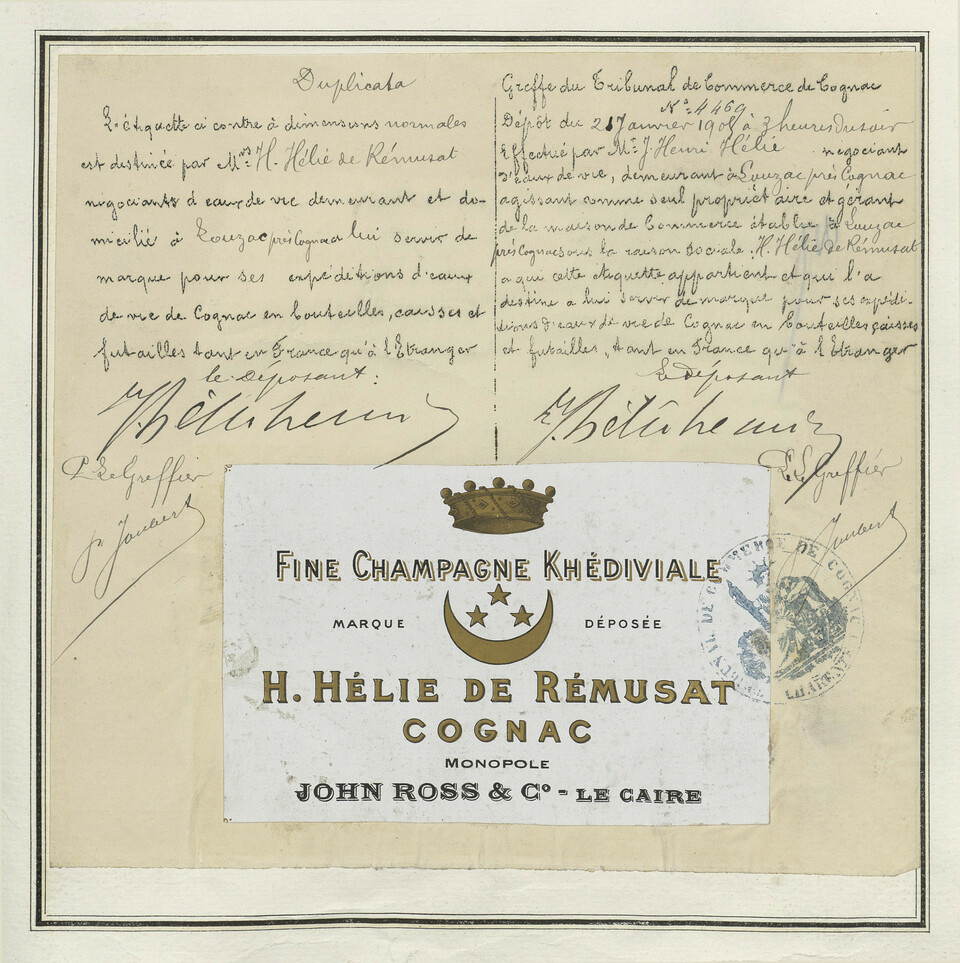 Duplicata
L'étiquette ci contre à dimensions normales
est destinée par Mrs H. Hélie de Rémusat
négociants d'eaux de vie demeurant et do-
micilié à Louzac près Cognac a lui servir de
marque pour ses expéditions d'eaux
de vie de Cognac en bouteilles, caisses et
futailles tant en France qu'à l'Etranger
le déposant:
P. Le Greffier
Joubert
Greffe du Tribunal de Commerce de Cognac
No: 4469
Dépôt du 21 Janvier 1908 à 3 heures du soir
Effectué par Mr. J. Henri Hélie négociant
d'eaux de vie, demeurant à Louzac près Cognac
agissant comme seul propriétaire et gérant
de la maison de Commerce établie à Louzac
près Cognac sous la raison sociale H. Hélie de Rémusat
a qui cette étiquette appartient et qui l'a
destine a lui servir de marque pour ses expédi-
tions d'eaux de vie de Cognac en bouteilles caisses
et futailles, tant en France qu'à l'Etranger
Le déposant
P. Le Greffier
Joubert
FINE CHAMPAGNE KHÉDIVIALE
MARQUE DÉPOSÉE
H. HÉLIE DE RÉMUSAT
COGNAC
MONOPOLE
JOHN ROSS & Co - LE CAIRE
COMMERCE DE COGNAC